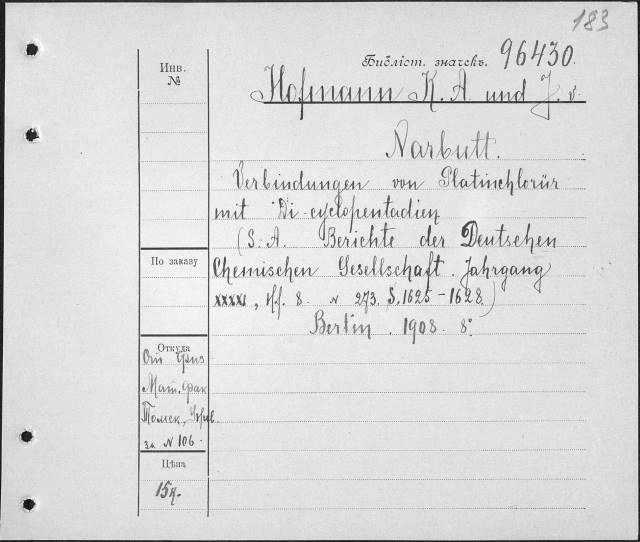 183
Инв.
№
Библіот. значекъ. 96430.
Hofmann K. A. und J. v.
Narbutt.
Verbindungen von Platinchlorür
mit Di-cyclopentadien
(S.-A. Berichte der Deutschen
По заказу
Chemischen Gesellschaft. Jahrgang
XXXXI, Hf. 8. N 273. S. 1625-1628)
Berlin. 1908. 8°.
Откуда
От Физ
Мат. фак
Томск. Унив.
за N 106.
Цѣна
15к.